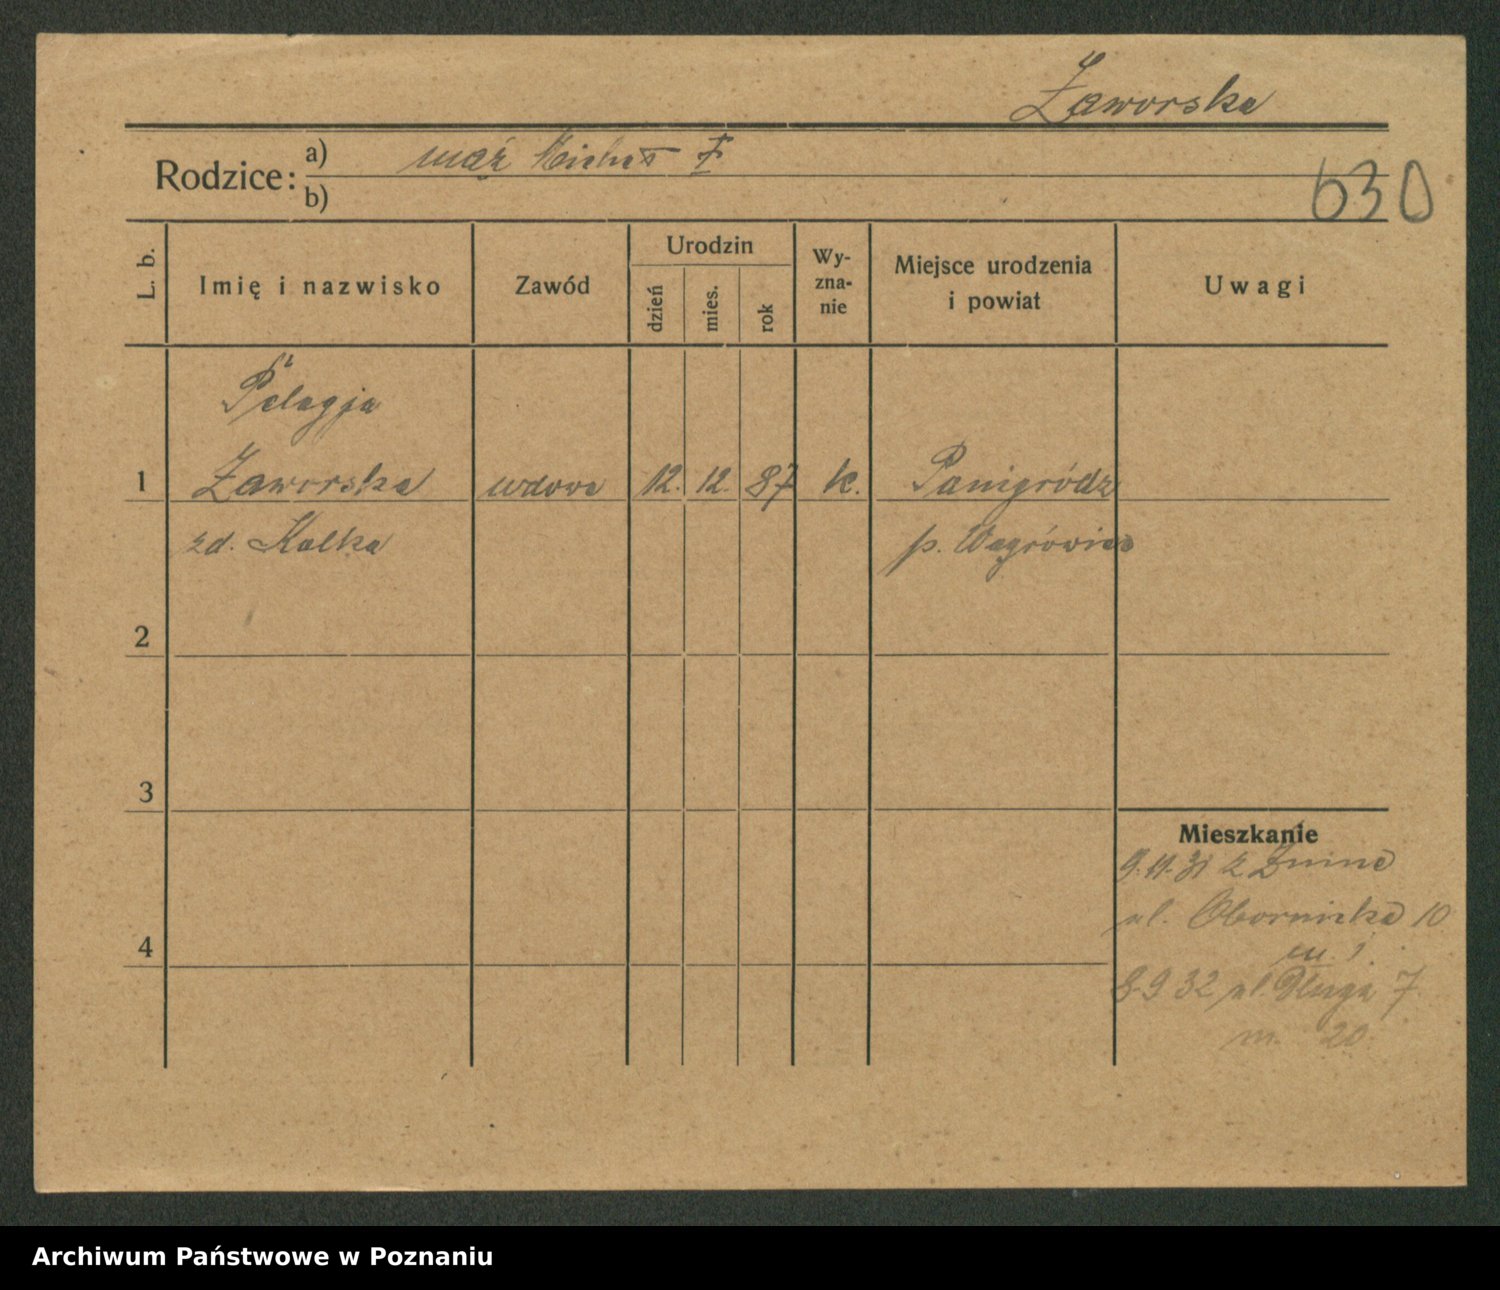 Zaworska
Rodzice: a) mąż Michał †
b)
630
L. b.
Imię i nazwisko
Zawód
Urodzin
dzień
mies.
rok
Wy-
zna-
nie
Miejsce urodzenia
i powiat
Uwagi
Pelagja
1 Zaworska wdowa 12. 12. 87 k. Panigródz
zd. Kalka p. Wągrówiec
2
3
Mieszkanie
9.11.31 z Żnina
ul. Obornicka 10
m. 1.
4
8.9 32 ul. Długa 7
m. 20
Archiwum Państwowe w Poznaniu